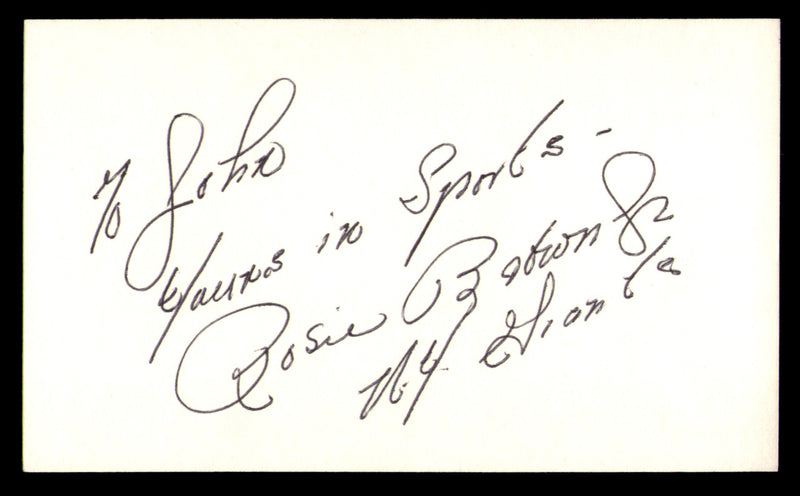 To John
Yours in Sports -
Rosie Brown Jr
NY Giants